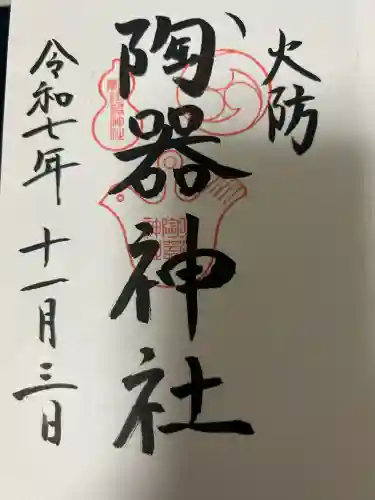 火防
陶器神社
令和七年十一月三日